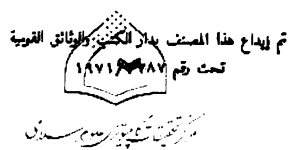 تم إيداع هذا المصنف بدار الكتب والوثائق القومية
تحت رقم ١٩٧١/٣٧٨٧
مرکز تحقیقات کامپیوتری علوم اسلامی